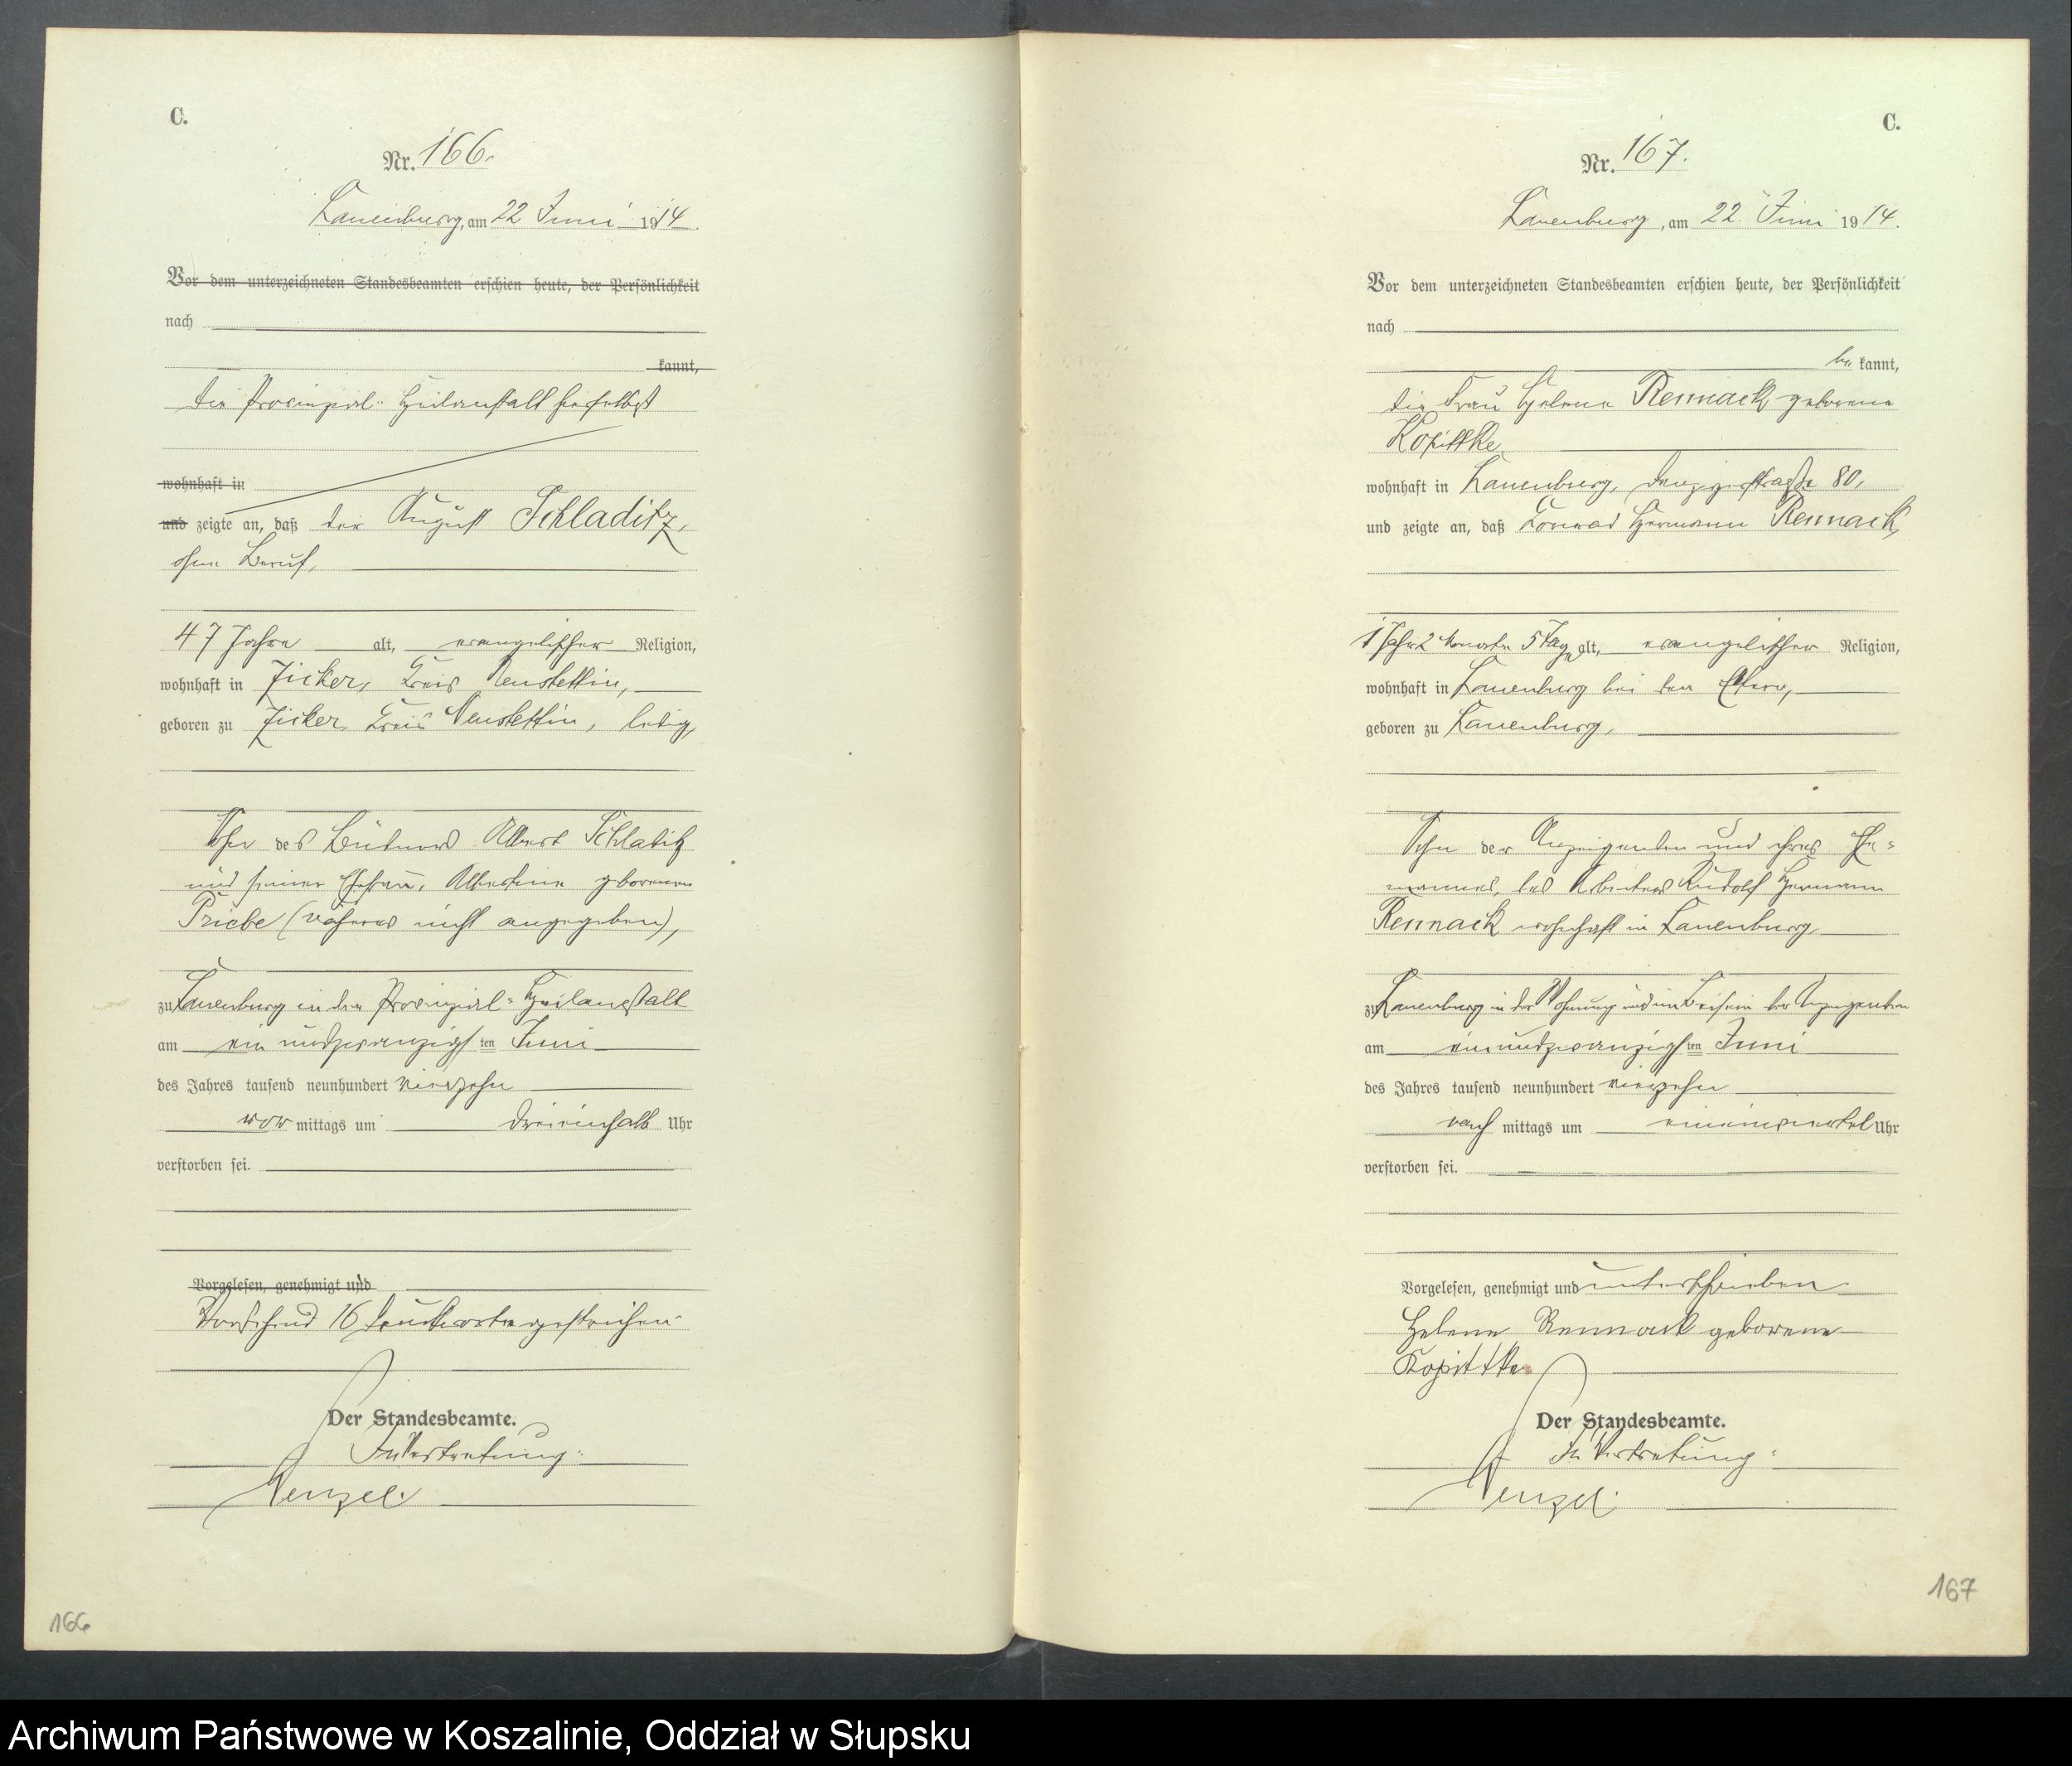 C.
Nr. 166.
Lauenburg, am 22 Juni 1914.
Vor dem unterzeichneten Standesbeamten erschien heute, der Persönlichkeit
nach
kannt,
die Provinzial-Heilanstalt hierselbst
wohnhaft in
und zeigte an, daß der August Schladitz,
ohne Beruf,
47 Jahre alt, evangelischer Religion,
wohnhaft in Zicker, Kreis Neustettin,
geboren zu Zicker, Kreis Neustettin, ledig,
Sohn des Büdners Albert Schladitz
und seiner Ehefrau, Albertine geborenen
Priebe (Näheres nicht angegeben),
zu Lauenburg in der Provinzial-Heilanstalt
am einundzwanzigsten Juni
des Jahres tausend neunhundert vierzehn
vor mittags um dreieinhalb Uhr
verstorben sei.
Vorgelesen, genehmigt und
Vorstehend 16 Druckworte gestrichen.
Der Standesbeamte.
In Vertretung:
Wenzel.
166
C.
Nr. 167.
Lauenburg, am 22. Juni 1914.
Vor dem unterzeichneten Standesbeamten erschien heute, der Persönlichkeit
nach
be kannt,
die Frau Helene Rennack geborene
Kopittke
wohnhaft in Lauenburg, Danzigerstraße 80,
und zeigte an, daß Konrad Hermann Rennack,
1 Jahr 2 Monate 5 Tage alt, evangelischer Religion,
wohnhaft in Lauenburg bei den Eltern,
geboren zu Lauenburg,
Sohn der Anzeigenden und ihres Ehe-
mannes, des Arbeiters Rudolf Hermann
Rennack wohnhaft in Lauenburg,
zu Lauenburg in der Wohnung und im Beisein der Anzeigenden
am einundzwanzigsten Juni
des Jahres tausend neunhundert vierzehn
nach mittags um eineinviertel Uhr
verstorben sei.
Vorgelesen, genehmigt und unterschrieben
Helene Rennack geborene
Kopittke
Der Standesbeamte.
In Vertretung:
Wenzel.
167
Archiwum Państwowe w Koszalinie, Oddział w Słupsku